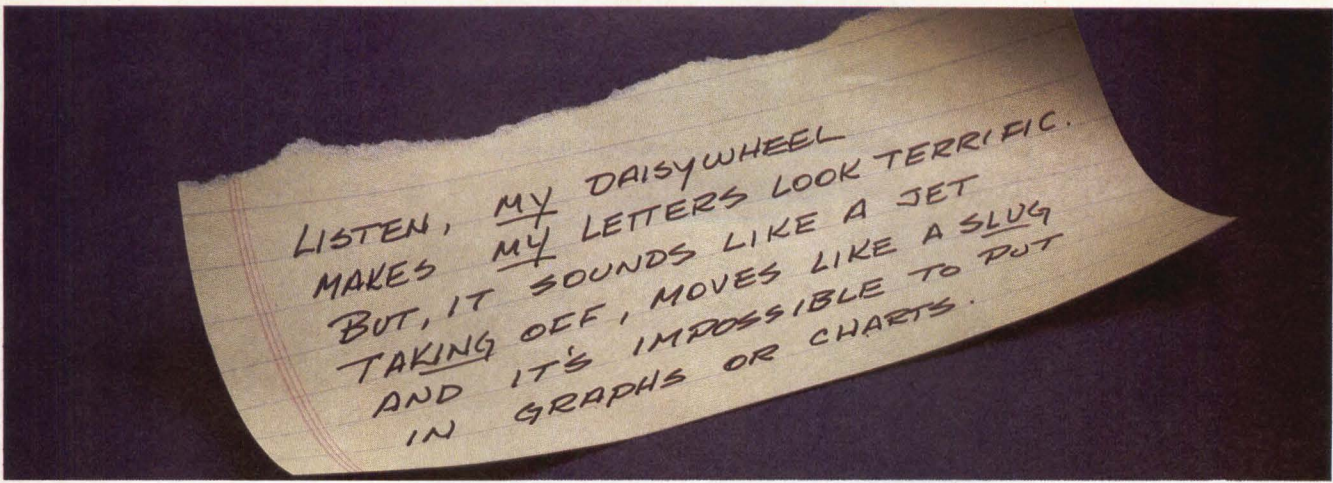 LISTEN, MY DAISYWHEEL
MAKES MY LETTERS LOOK TERRIFIC.
BUT, IT SOUNDS LIKE A JET
TAKING OFF, MOVES LIKE A SLUG
AND IT'S IMPOSSIBLE TO PUT
IN GRAPHS OR CHARTS.